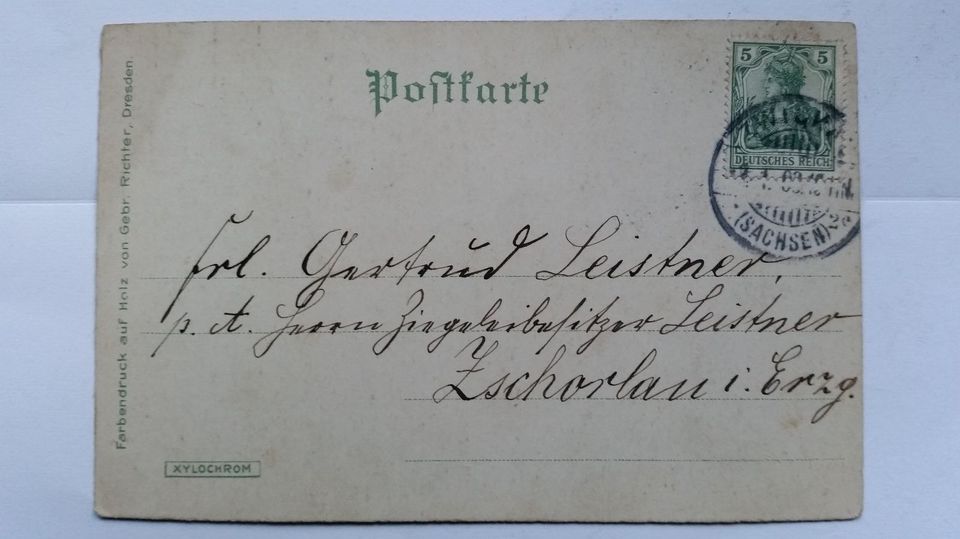 Postkarte
5 5
DEUTSCHES REICH
(SACHSEN)
Frl. Gertrud Leistner,
p. A. Herrn Ziegeleibesitzer Leistner
Zschorlau i. Erzg.
XYLOCHROM
Farbendruck auf Holz von Gebr. Richter, Dresden.